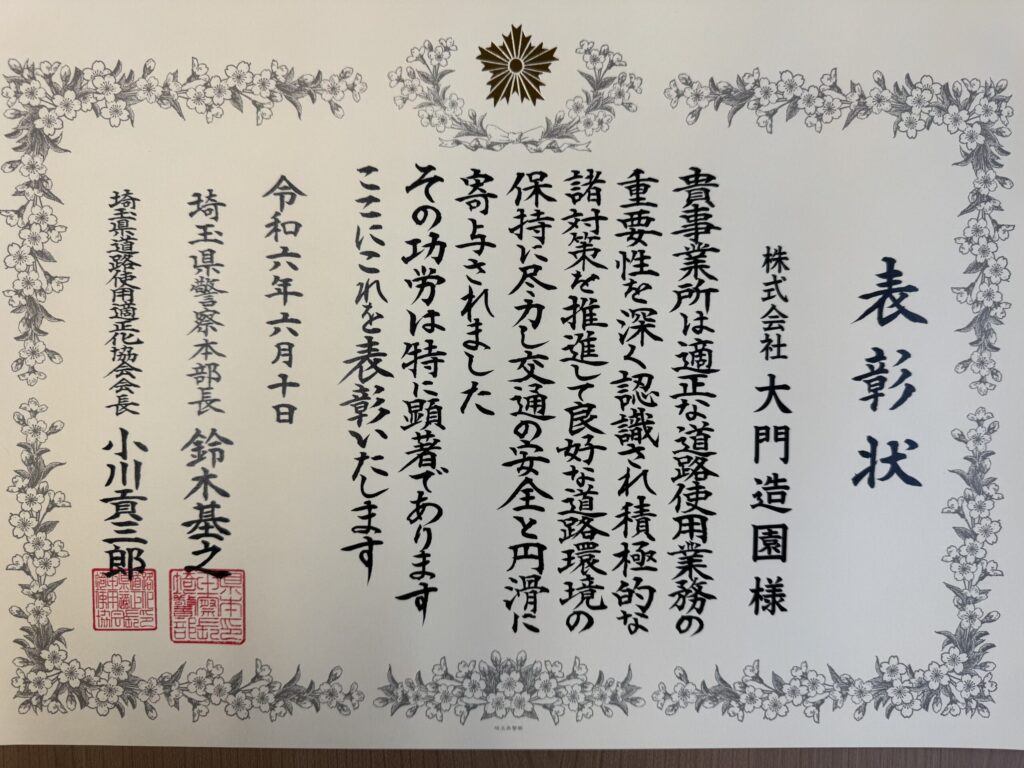 表彰状
株式会社 大門造園様
貴事業所は適正な道路使用業務の
重要性を深く認識され積極的な
諸対策を推進して良好な道路環境の
保持に尽力し交通の安全と円滑に
寄与されました
その功労は特に顕著であります
ここにこれを表彰いたします
令和六年六月十日
埼玉県警察本部長 鈴木基之
埼玉県道路使用適正化協会会長 小川貢三郎